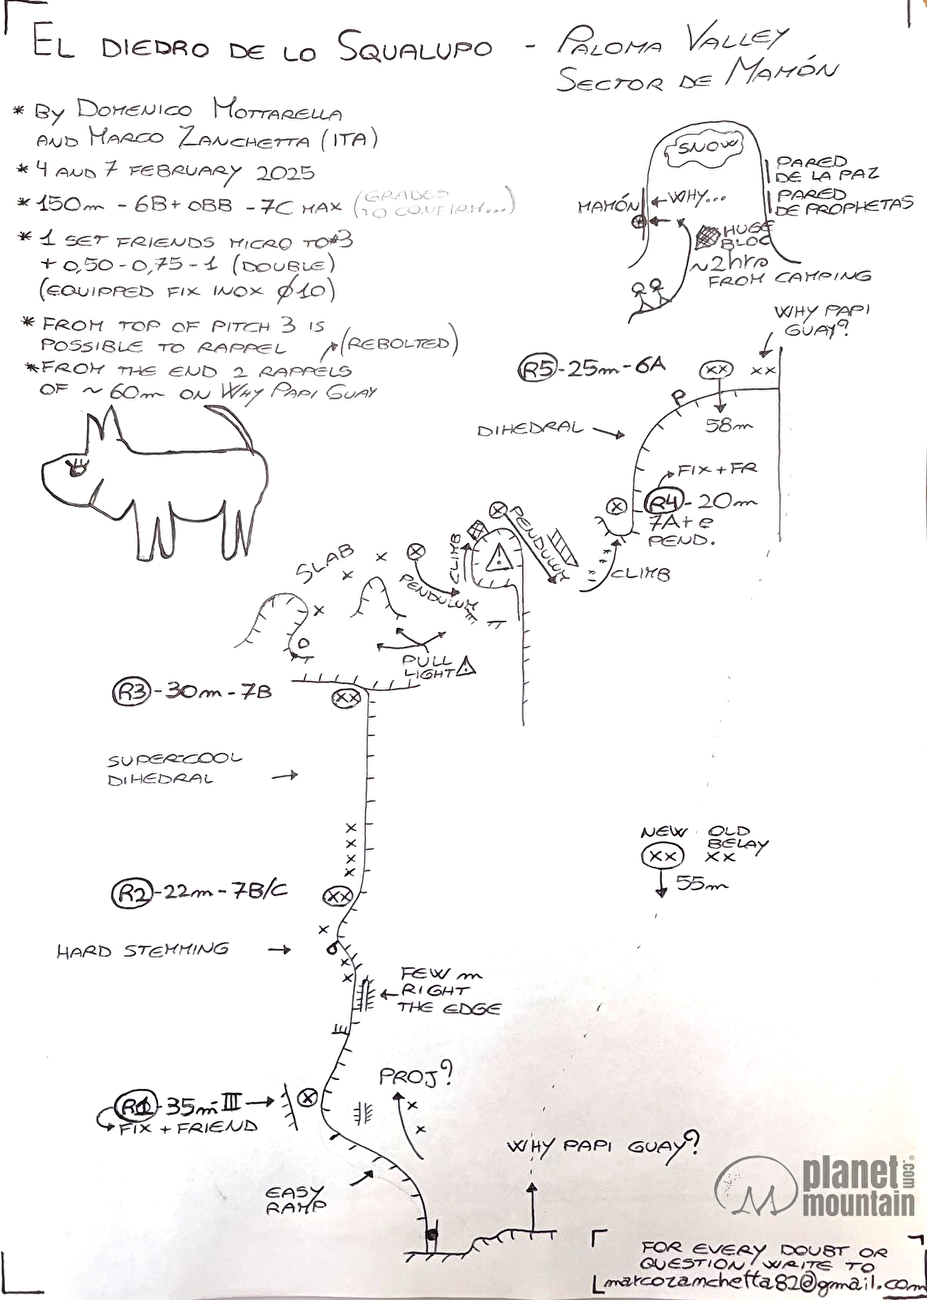 EL DIEDRO DE LO SQUALUPO - PALOMA VALLEY
SECTOR DE MAMÓN
* BY DOMENICO MOTTARELLA
AND MARCO ZANCHETTA (ITA)
* 4 AND 7 FEBRUARY 2025
* 150m - 6B+ OBB - 7C MAX (GRADES
TO CONFIRM...)
* 1 SET FRIENDS MICRO TO #3
+ 0,50 - 0,75 - 1 (DOUBLE)
(EQUIPPED FIX INOX Ø10)
* FROM TOP OF PITCH 3 IS
POSSIBLE TO RAPPEL
(REBOLTED)
* FROM THE END 2 RAPPELS
OF ~ 60m ON WHY PAPI GUAY
SNOW
PARED
DE LA PAZ
PARED
DE PROPHETAS
MAMÓN
WHY...
HUGE
BLOC
~2hrs
FROM CAMPING
WHY PAPI
GUAY?
R5 - 25m - 6A
XX
XX
P
58m
DIHEDRAL
FIX + FR
R4 - 20m
7A+ e
PEND.
PENDULUM
CLIMB
CLIMB
SLAB
PENDULUM
PULL
LIGHT
R3 - 30m - 7B
XX
SUPERCOOL
DIHEDRAL
NEW
XX
OLD
BELAY
XX
55m
R2 - 22m - 7B/C
XX
HARD STEMMING
FEW m
RIGHT
THE EDGE
PROJ?
R1 - 35m - III
FIX + FRIEND
WHY PAPI GUAY?
EASY
RAMP
planet
mountain
.com
FOR EVERY DOUBT OR
QUESTION WRITE TO
marcozanchetta82@gmail.com